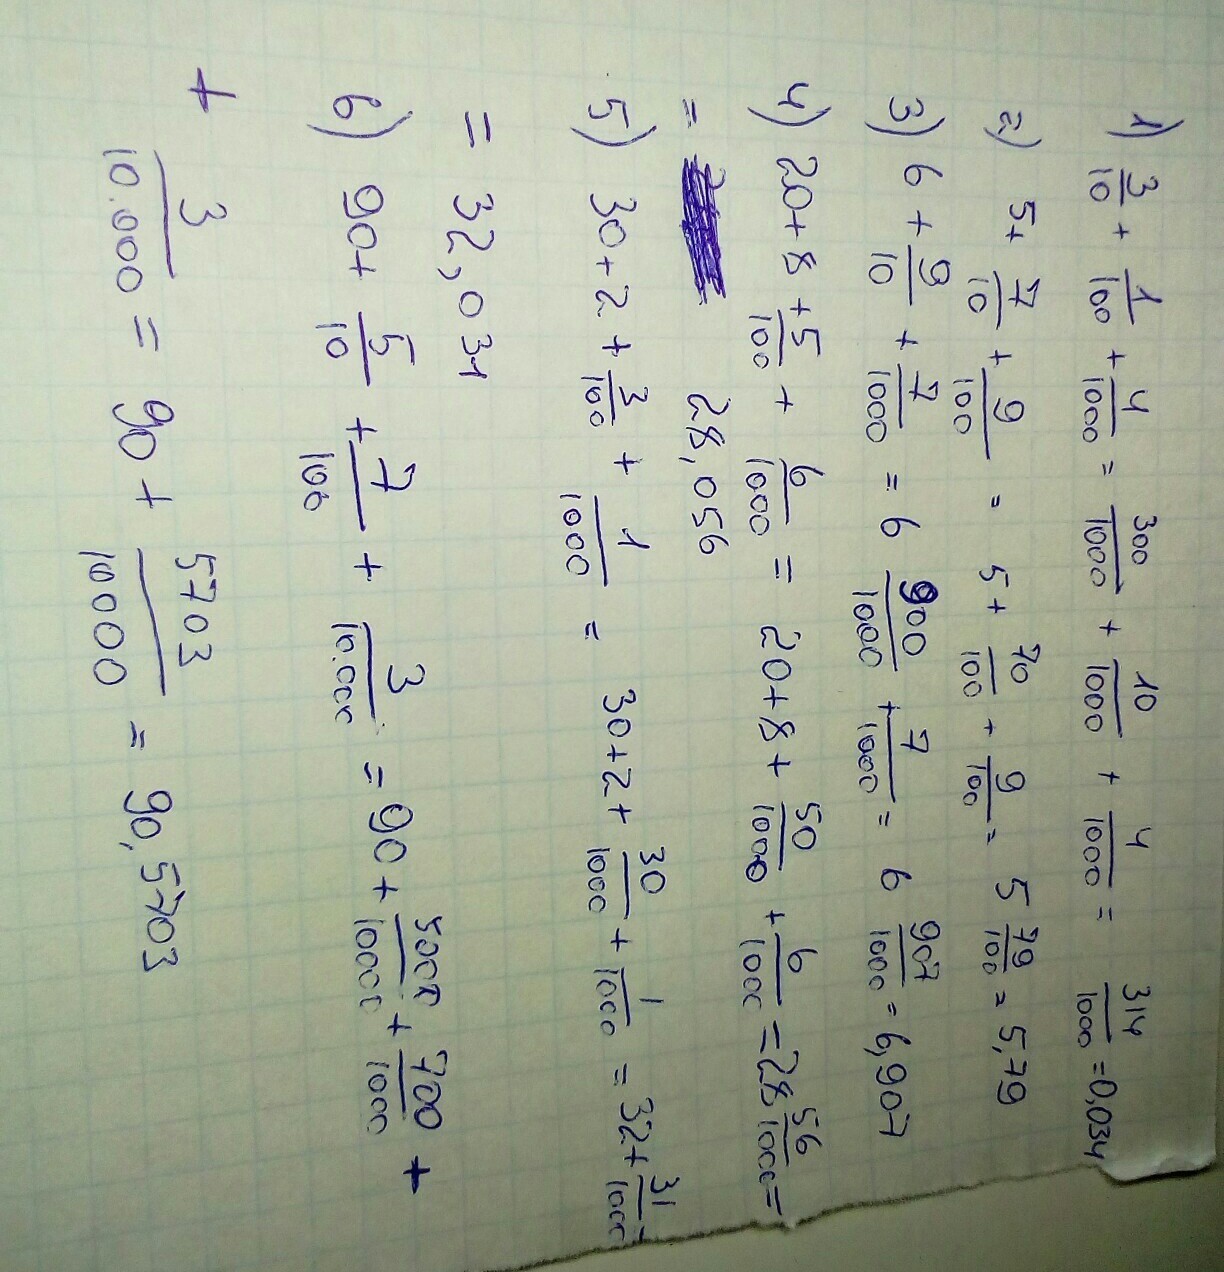 1) 3/10 + 1/100 + 4/1000 = 300/1000 + 10/1000 + 4/1000 = 314/1000 = 0,034
2) 5 + 7/10 + 9/100 = 5 + 70/100 + 9/100 = 5 79/100 = 5,79
3) 6 + 9/10 + 7/1000 = 6 900/1000 + 7/1000 = 6 907/1000 = 6,907
4) 20 + 8 + 5/100 + 6/1000 = 20 + 8 + 50/1000 + 6/1000 = 28 56/1000 =
= 28,056
5) 30 + 2 + 3/100 + 1/1000 = 30 + 2 + 30/1000 + 1/1000 = 32 + 31/1000 =
= 32,031
6) 90 + 5/10 + 7/100 + 3/10.000 = 90 + 5000/10000 + 700/1000 +
+ 3/10.000 = 90 + 5703/10000 = 90,5703